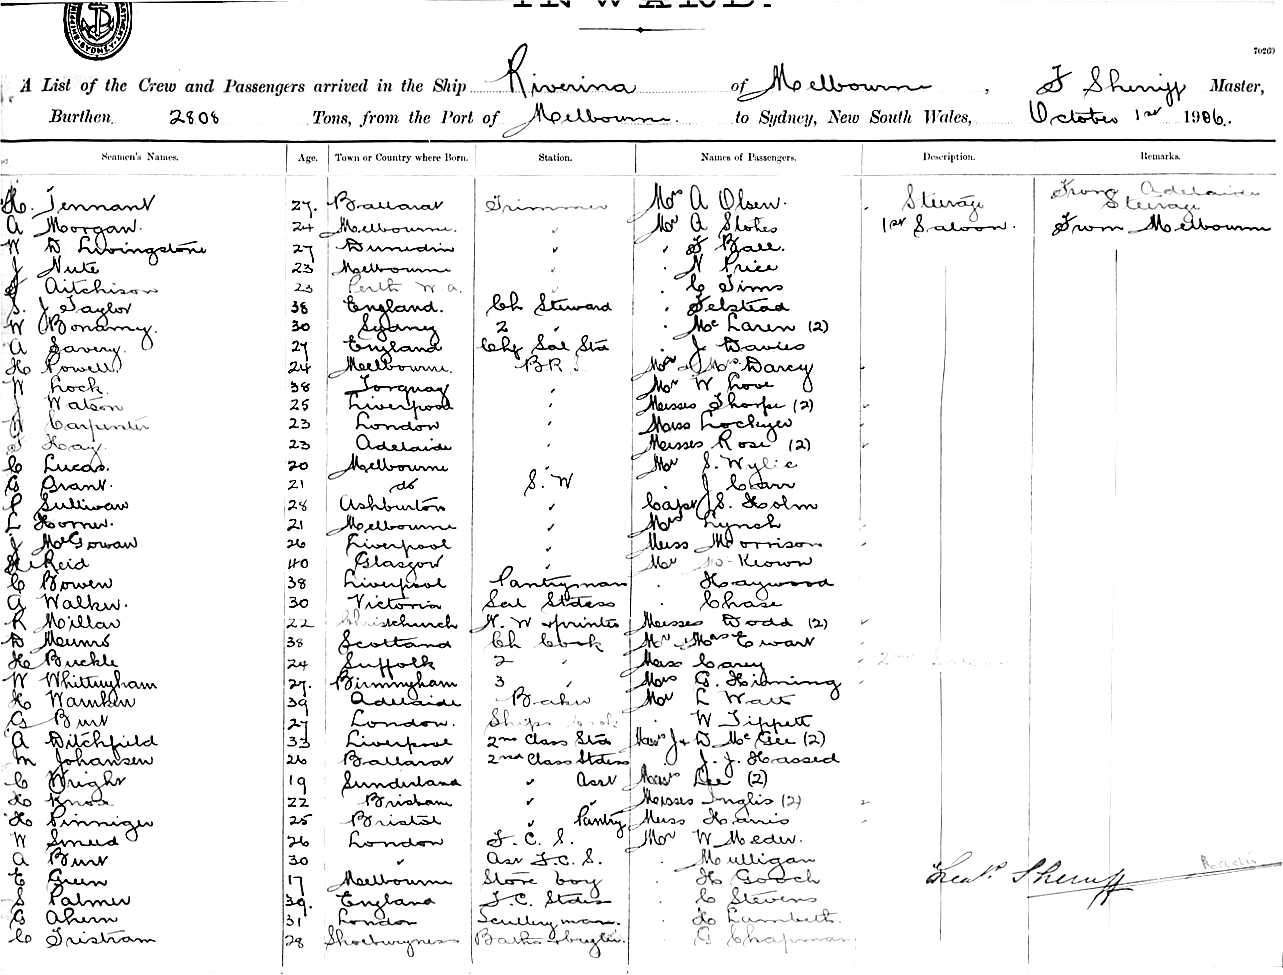 INWARD.
70269
A List of the Crew and Passengers arrived in the Ship Riverina of Melbourne, F Sherriff Master,
Burthen 2808 Tons, from the Port of Melbourne to Sydney, New South Wales, October 1st 1906.
Seamen's Names. Age. Town or Country where Born. Station. Names of Passengers. Description. Remarks.
H. Tennant 27. Ballarat Trimmer Mrs A Olsen. Steerage From Adelaide Steerage
A Morgan. 24 Melbourne. " Mr A Stokes 1st Saloon. From Melbourne
W D Livingstone 27 Dunedin " " F Ball.
J Nute 23 Melbourne " " N Price
Aitchison 23 Perth W A. " C Sims
S. J Taylor 38 England. Ch Steward " Felstead
W Bonamy. 30 Sydney 2 " " McLaren (2)
A Savery. 27 England Chf Sal Std J Davies
H Powell 24 Melbourne. B R S Mr & Mrs Darcy
W Lock 38 Torquay " Mr W Love
J Watson 25 Liverpool " Misses Thorpe (2)
Carpenter 23 London " Miss Lockyer
Hay 23 Adelaide " Misses Rose (2)
C Lucas. 20 Melbourne " Mr S. Wylie
G Grant. 21 do S. W " J Carr
P Sullivan 28 Ashburton " Capt J S. Holm
L Horner. 21 Melbourne " Mrs Lynch
J McGowan 26 Liverpool " Miss Morrison
H Reid 40 Glasgow " Mr McKeown
C Bowen 38 Liverpool Pantryman " Haywood
A Walker. 30 Victoria Sal Stdess " Chase
R Millar 22 Christchurch N. W Misses Dodd (2)
D Mearns 38 Scotland Ch Cook Mr & Mrs Ewart
H Buckle 24 Suffolk 2 " Miss Carey
W Whittingham 27. Birmingham 3 " Mrs G.
H Warnken 39 Adelaide Baker Mr L Watt
G Burt 27 London. Ships Cook " W Tippett
A Ditchfield 33 Liverpool 2nd Class Std J & D McGee (2)
M Johansen 26 Ballarat 2nd Class Stdess " J. J. Hassed
C Wright 19 Sunderland " Asst Lee (2)
H Knox 22 Brisbane " " Misses Inglis (2)
H Pinniger 25 Bristol " Pantry Miss Harris
W Smeed 26 London F. C. S. Mr W Meder.
A Burt 30 " Asst F. C. S. " Mulligan
E Green 17 Melbourne Store boy " H Gooch
S Palmer 39. England F. C. Stdess " C Stevens
G Ahern 31 London Scullery man " H Lambeth.
C Tristram 28 Shoeburyness " G Chapman
Sherriff